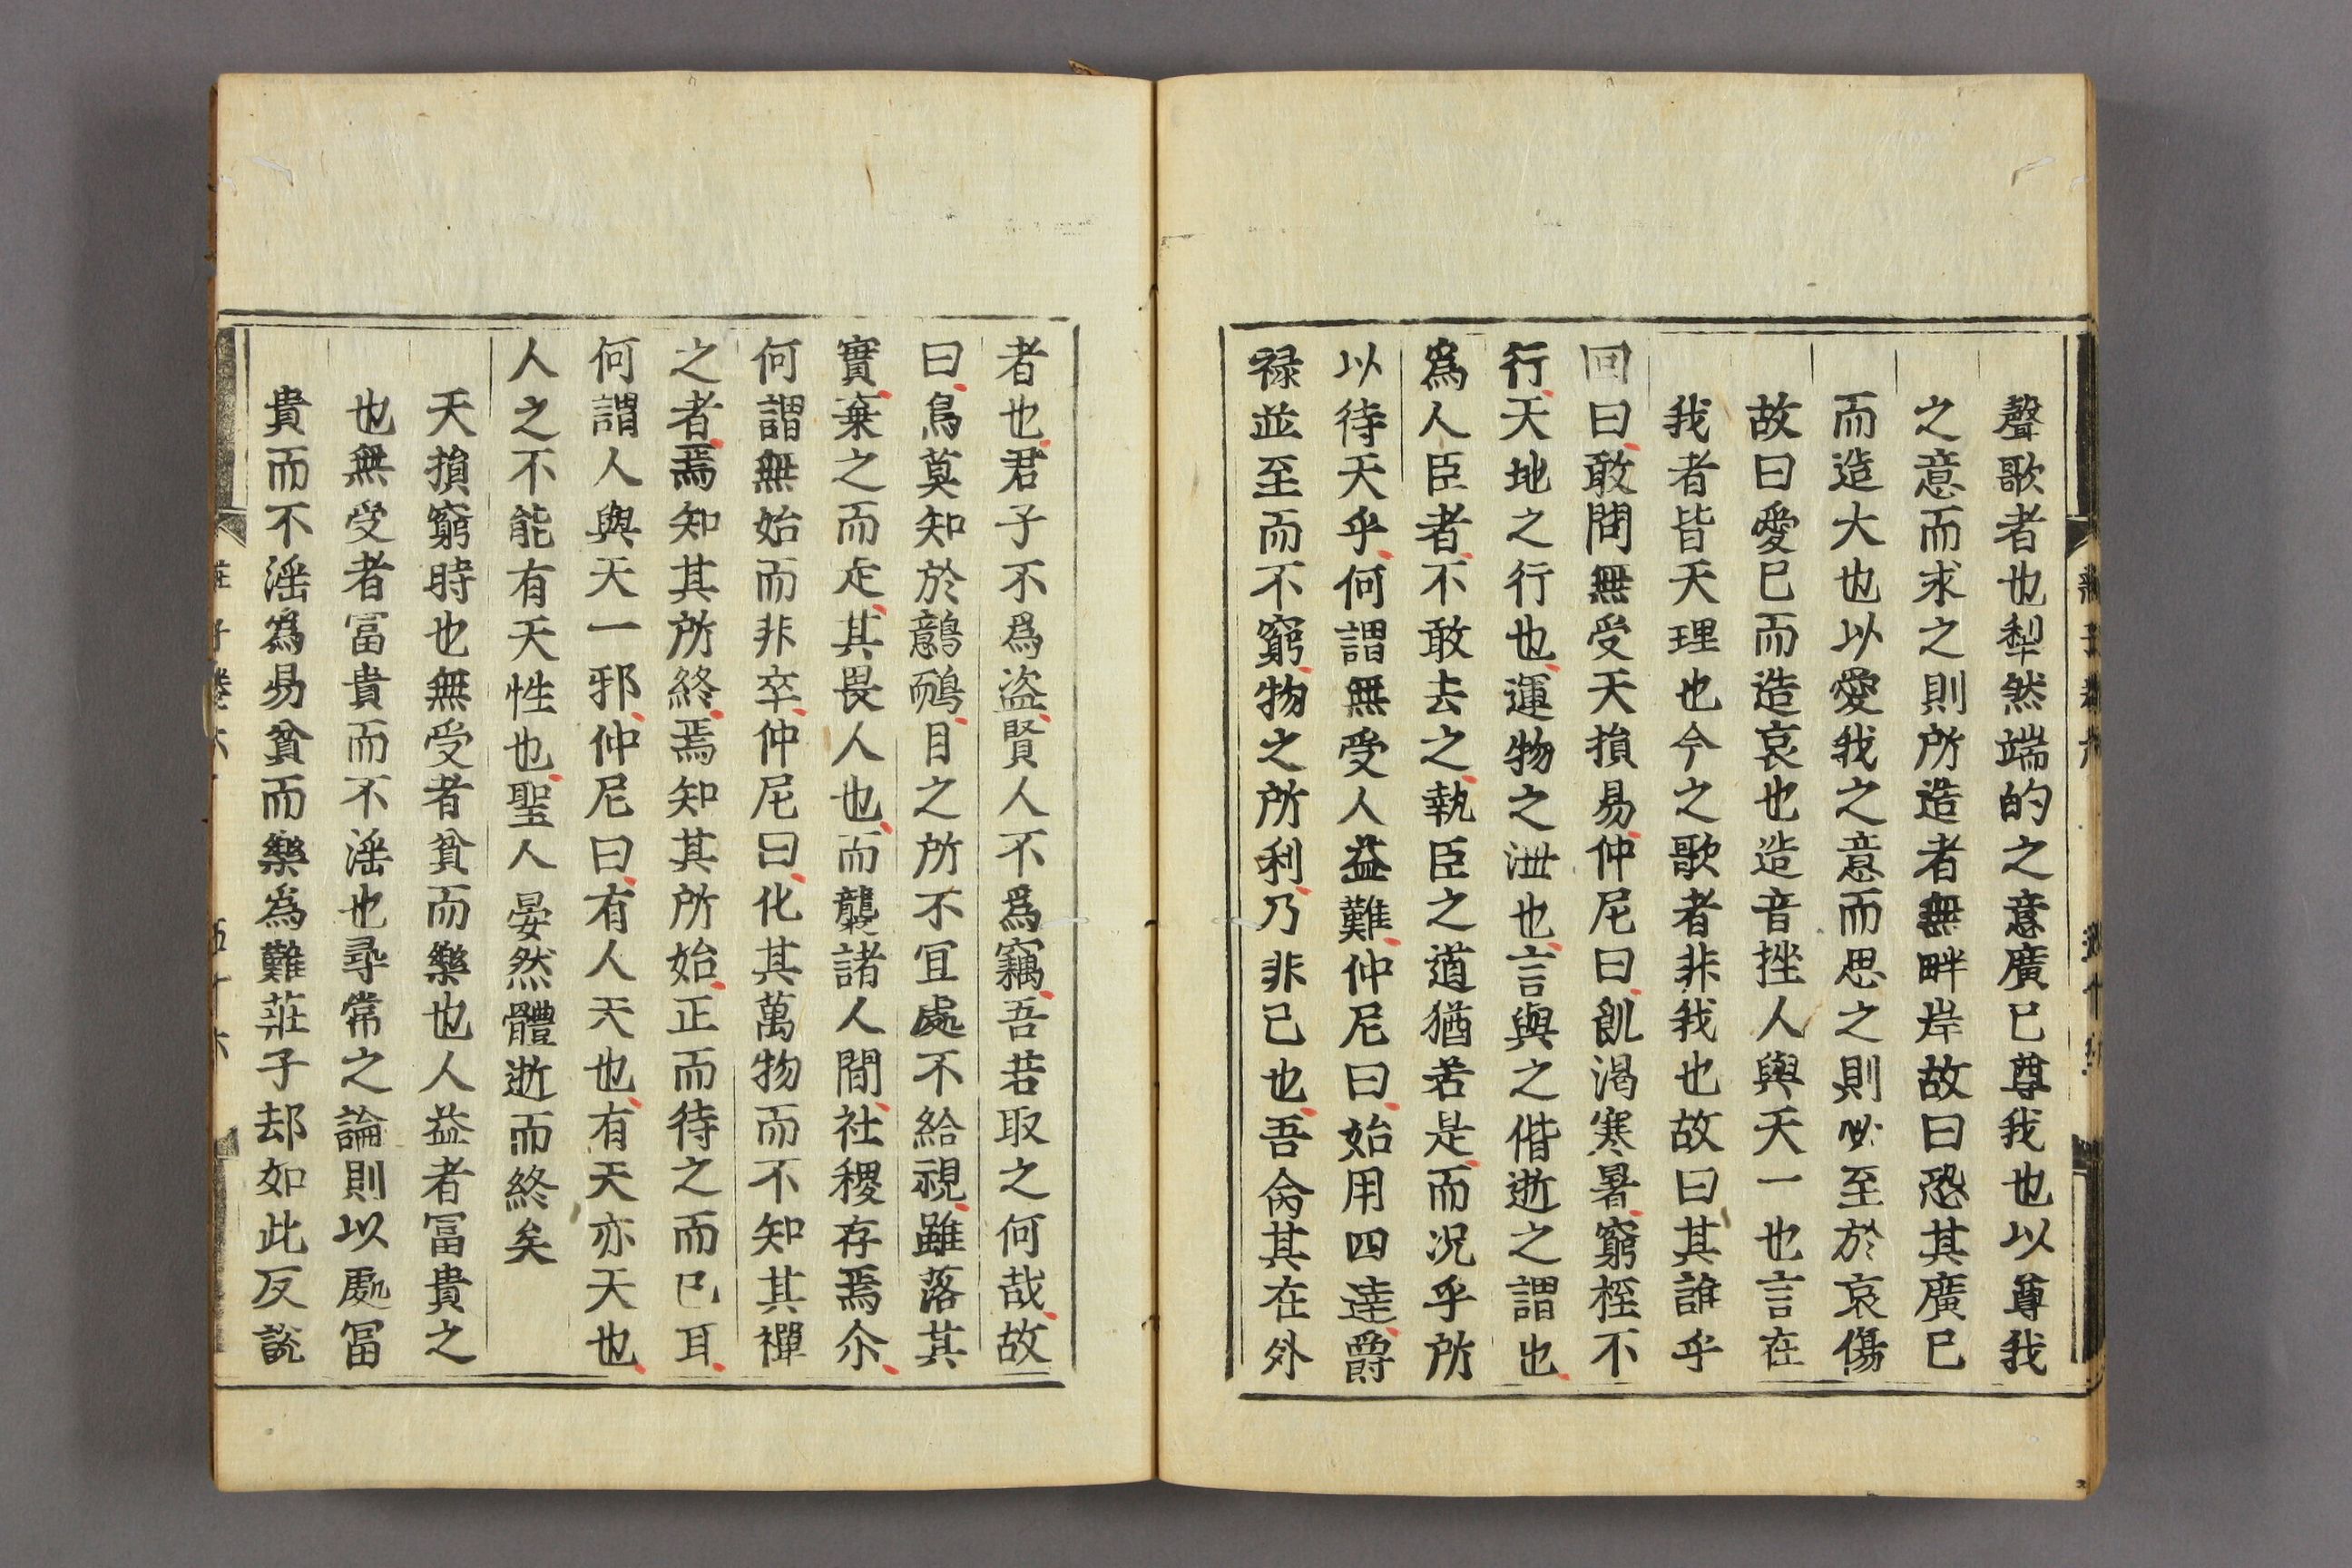 聲歌者也犁然端的之意廣已尊我也以尊我
之意而求之則所造者無畔岸故曰恐其廣已
而造大也以愛我之意而思之則必至於哀傷
故曰愛已而造哀也造音挫人與天一也言在
我者皆天理也今之歌者非我也故曰其誰乎
回曰敢問無受天損易仲尼曰飢渴寒暑窮桎不
行天地之行也運物之泄也言與之偕逝之謂也
爲人臣者不敢去之執臣之道猶若是而况乎所
以待天乎何謂無受人益難仲尼曰始用四達爵
禄並至而不窮物之所利乃非己也吾命其在外
者也君子不爲盗賢人不爲竊吾若取之何哉故
曰鳥莫知於鷾鴯目之所不宜處不給視雖落其
實棄之而走其畏人也而襲諸人間社稷存焉尒
何謂無始而非卒仲尼曰化其萬物而不知其禪
之者焉知其所終焉知其所始正而待之而已耳
何謂人與天一邪仲尼曰有人天也有天亦天也
人之不能有天性也聖人晏然體逝而終矣
天損窮時也無受者貧而樂也人益者冨貴之
也無受者冨貴而不滛也尋常之論則以處冨
貴而不滛爲易貧而樂爲難莊子却如此反說
莊子卷六
五十六